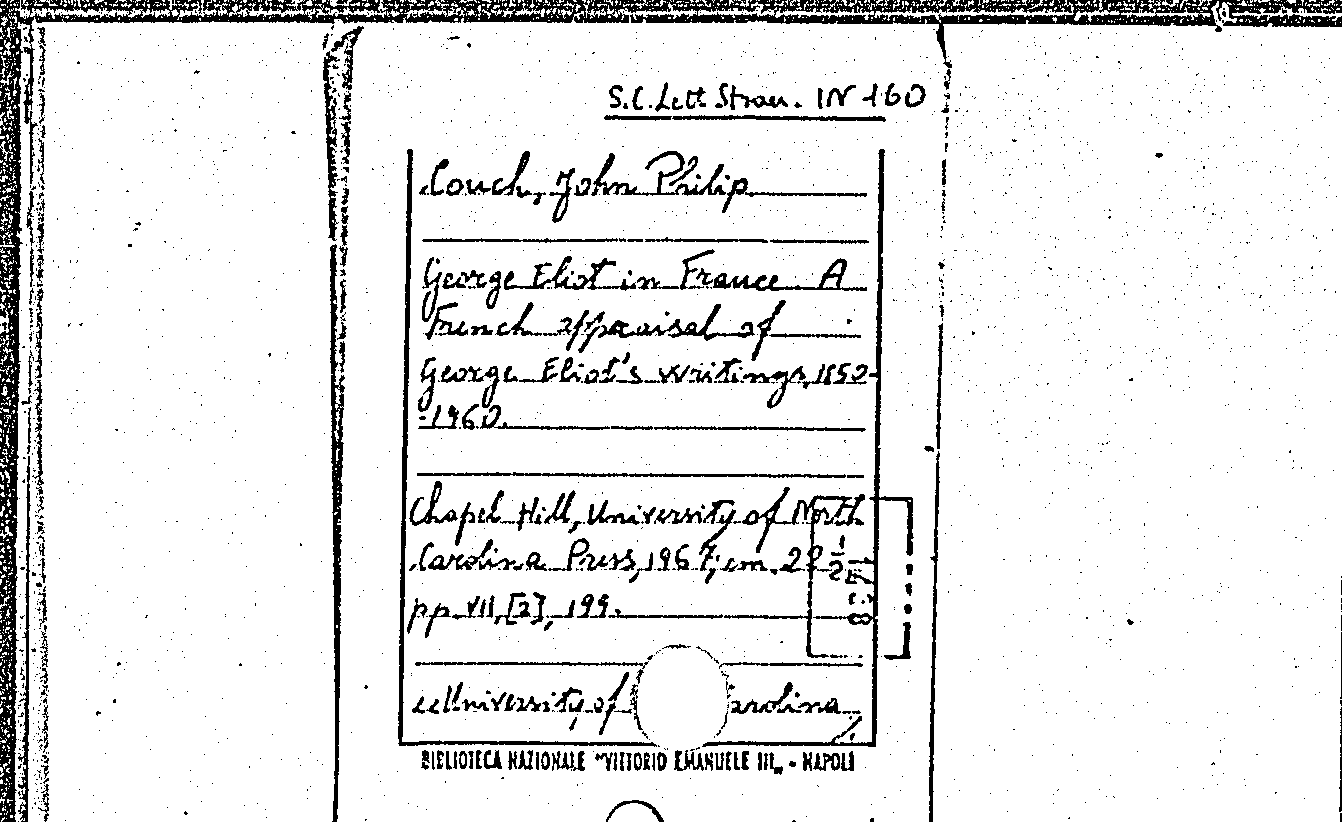 S.C. Lett. Stran. IN 160
Couch, John Philip
George Eliot in France. A
French appraisal of
George Eliot's writings, 1850-
-1960.
Chapel Hill, University of North
Carolina Press, 1967; cm. 22 1/2
pp. VII, [2], 199.
University of arolina
BIBLIOTECA NAZIONALE "VITTORIO EMANUELE III" - NAPOLI